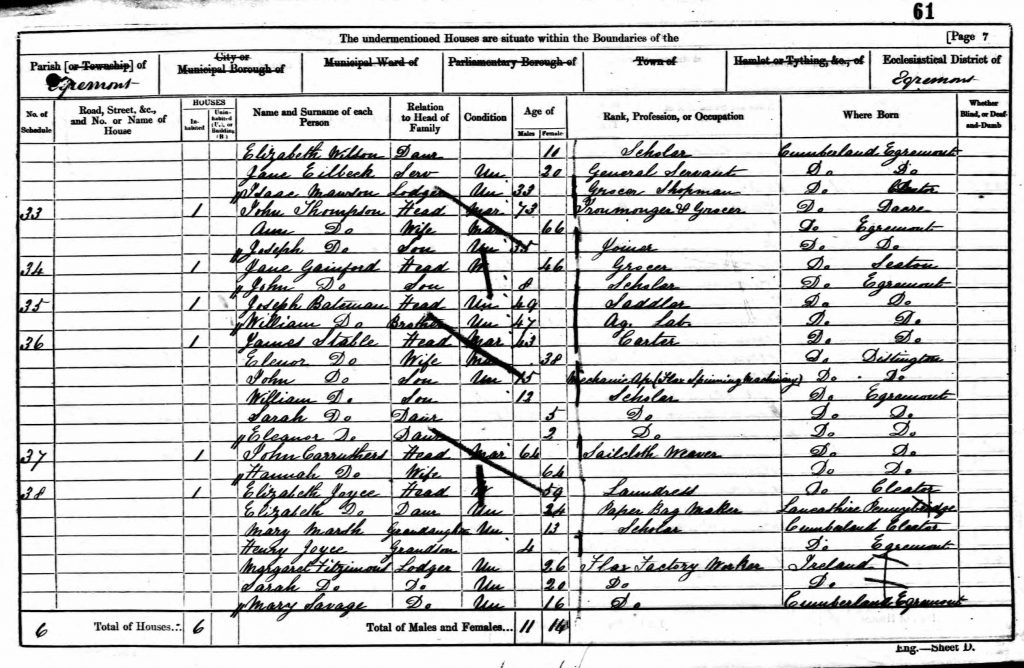 61
The undermentioned Houses are situate within the Boundaries of the [Page 7
Parish [or Township] of City or Municipal Borough of Municipal Ward of Parliamentary Borough of Town of Hamlet or Tything, &c., of Ecclesiastical District of
Egremont Egremont
No. of Schedule Road, Street, &c., and No. or Name of House HOUSES In-habited Unin-habited (U.), or Building (B.) Name and Surname of each Person Relation to Head of Family Condition Age of Males Females Rank, Profession, or Occupation Where Born Whether Blind, or Deaf-and-Dumb
Elizabeth Wilson Daur 11 Scholar Cumberland Egremont
Jane Eilbeck Serv Un 20 General Servant Do Do
Isaac Mawson Lodger Un 33 Grocer Shopman Do
33 1 John Thompson Head Mar 73 Ironmonger & Grocer Do Dacre
Ann Do Wife Mar 66 Do Egremont
Joseph Do Son Un 35 Joiner Do Do
34 1 Jane Gainford Head W 46 Grocer Do Seaton
John Do Son 8 Scholar Do Egremont
35 1 Joseph Bateman Head Un 49 Saddler Do Do
William Do Brother Un 47 Ag. Lab Do Do
36 1 James Stable Head Mar 43 Carter Do Do
Elenor Do Wife Mar 38 Do Distington
John Do Son Un 15 Mechanic Ap. (Flax Spinning Machinery) Do Do
William Do Son 12 Scholar Do Egremont
Sarah Do Daur 5 Do Do Do
Eleanor Do Daur 2 Do Do Do
37 1 John Carruthers Head Mar 64 Sailcloth Weaver Do Do
Hannah Do Wife 64 Do Do
38 1 Elizabeth Joyce Head W 59 Laundress Do Cleator
Elizabeth Do Daur Un 24 Paper Bag Maker Lancashire
Mary Marsh Grandaughter Un 13 Scholar Cumberland Cleator
Henry Joyce Grandson 4 Do Egremont
Margaret Fitzimons Lodger Un 26 Flax Factory Worker Ireland
Sarah Do Do Un 20 Do Do
Mary Savage Do Un 16 Do Cumberland Egremont
6 Total of Houses... 6 Total of Males and Females... 11 14
Eng.—Sheet D.